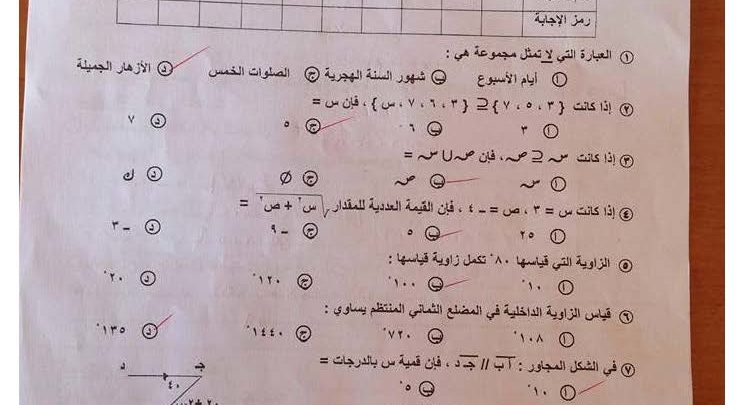 رمز الإجابة
١ العبارة التي لا تمثل مجموعة هي :
أ أيام الأسبوع ب شهور السنة الهجرية ج الصلوات الخمس د الأزهار الجميلة
٢ إذا كانت { ٣ ، ٥ ، ٧ } ⊆ { ٣ ، ٦ ، ٧ ، س } ، فإن س =
أ ٣ ب ٦ ج ٥ د ٧
٣ إذا كانت س ⊆ ص ، فإن ص ∪ س =
أ س ب ص ج ∅ د ك
٤ إذا كانت س = ٣ ، ص = – ٤ ، فإن القيمة العددية للمقدار √س٢ + ص٢ =
أ ٢٥ ب ٥ ج – ٩ د – ٣
٥ الزاوية التي قياسها ٨٠° تكمل زاوية قياسها :
أ ١٠° ب ١٠٠° ج ١٢٠° د ٢٠°
٦ قياس الزاوية الداخلية في المضلع الثماني المنتظم يساوي :
أ ١٠٨° ب ٧٢٠° ج ١٤٤٠° د ١٣٥°
٧ في الشكل المجاور : أب // جـ د ، فإن قمية س بالدرجات =
أ ١٠° ب ٥°
د جـ
٤٠